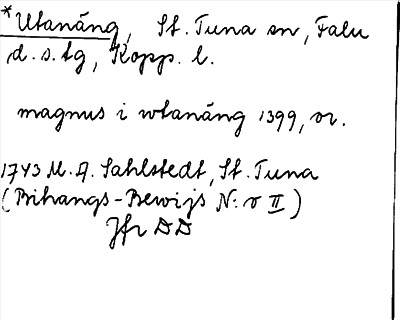 *Utanäng, St. Tuna sn, Falu
d.s.tg, Kopp. l.
magnus i wtanäng 1399, or.
1743 M. A. Sahlstedt, St. Tuna
(Bihangs-Bewijs N:o II)
Jfr DD